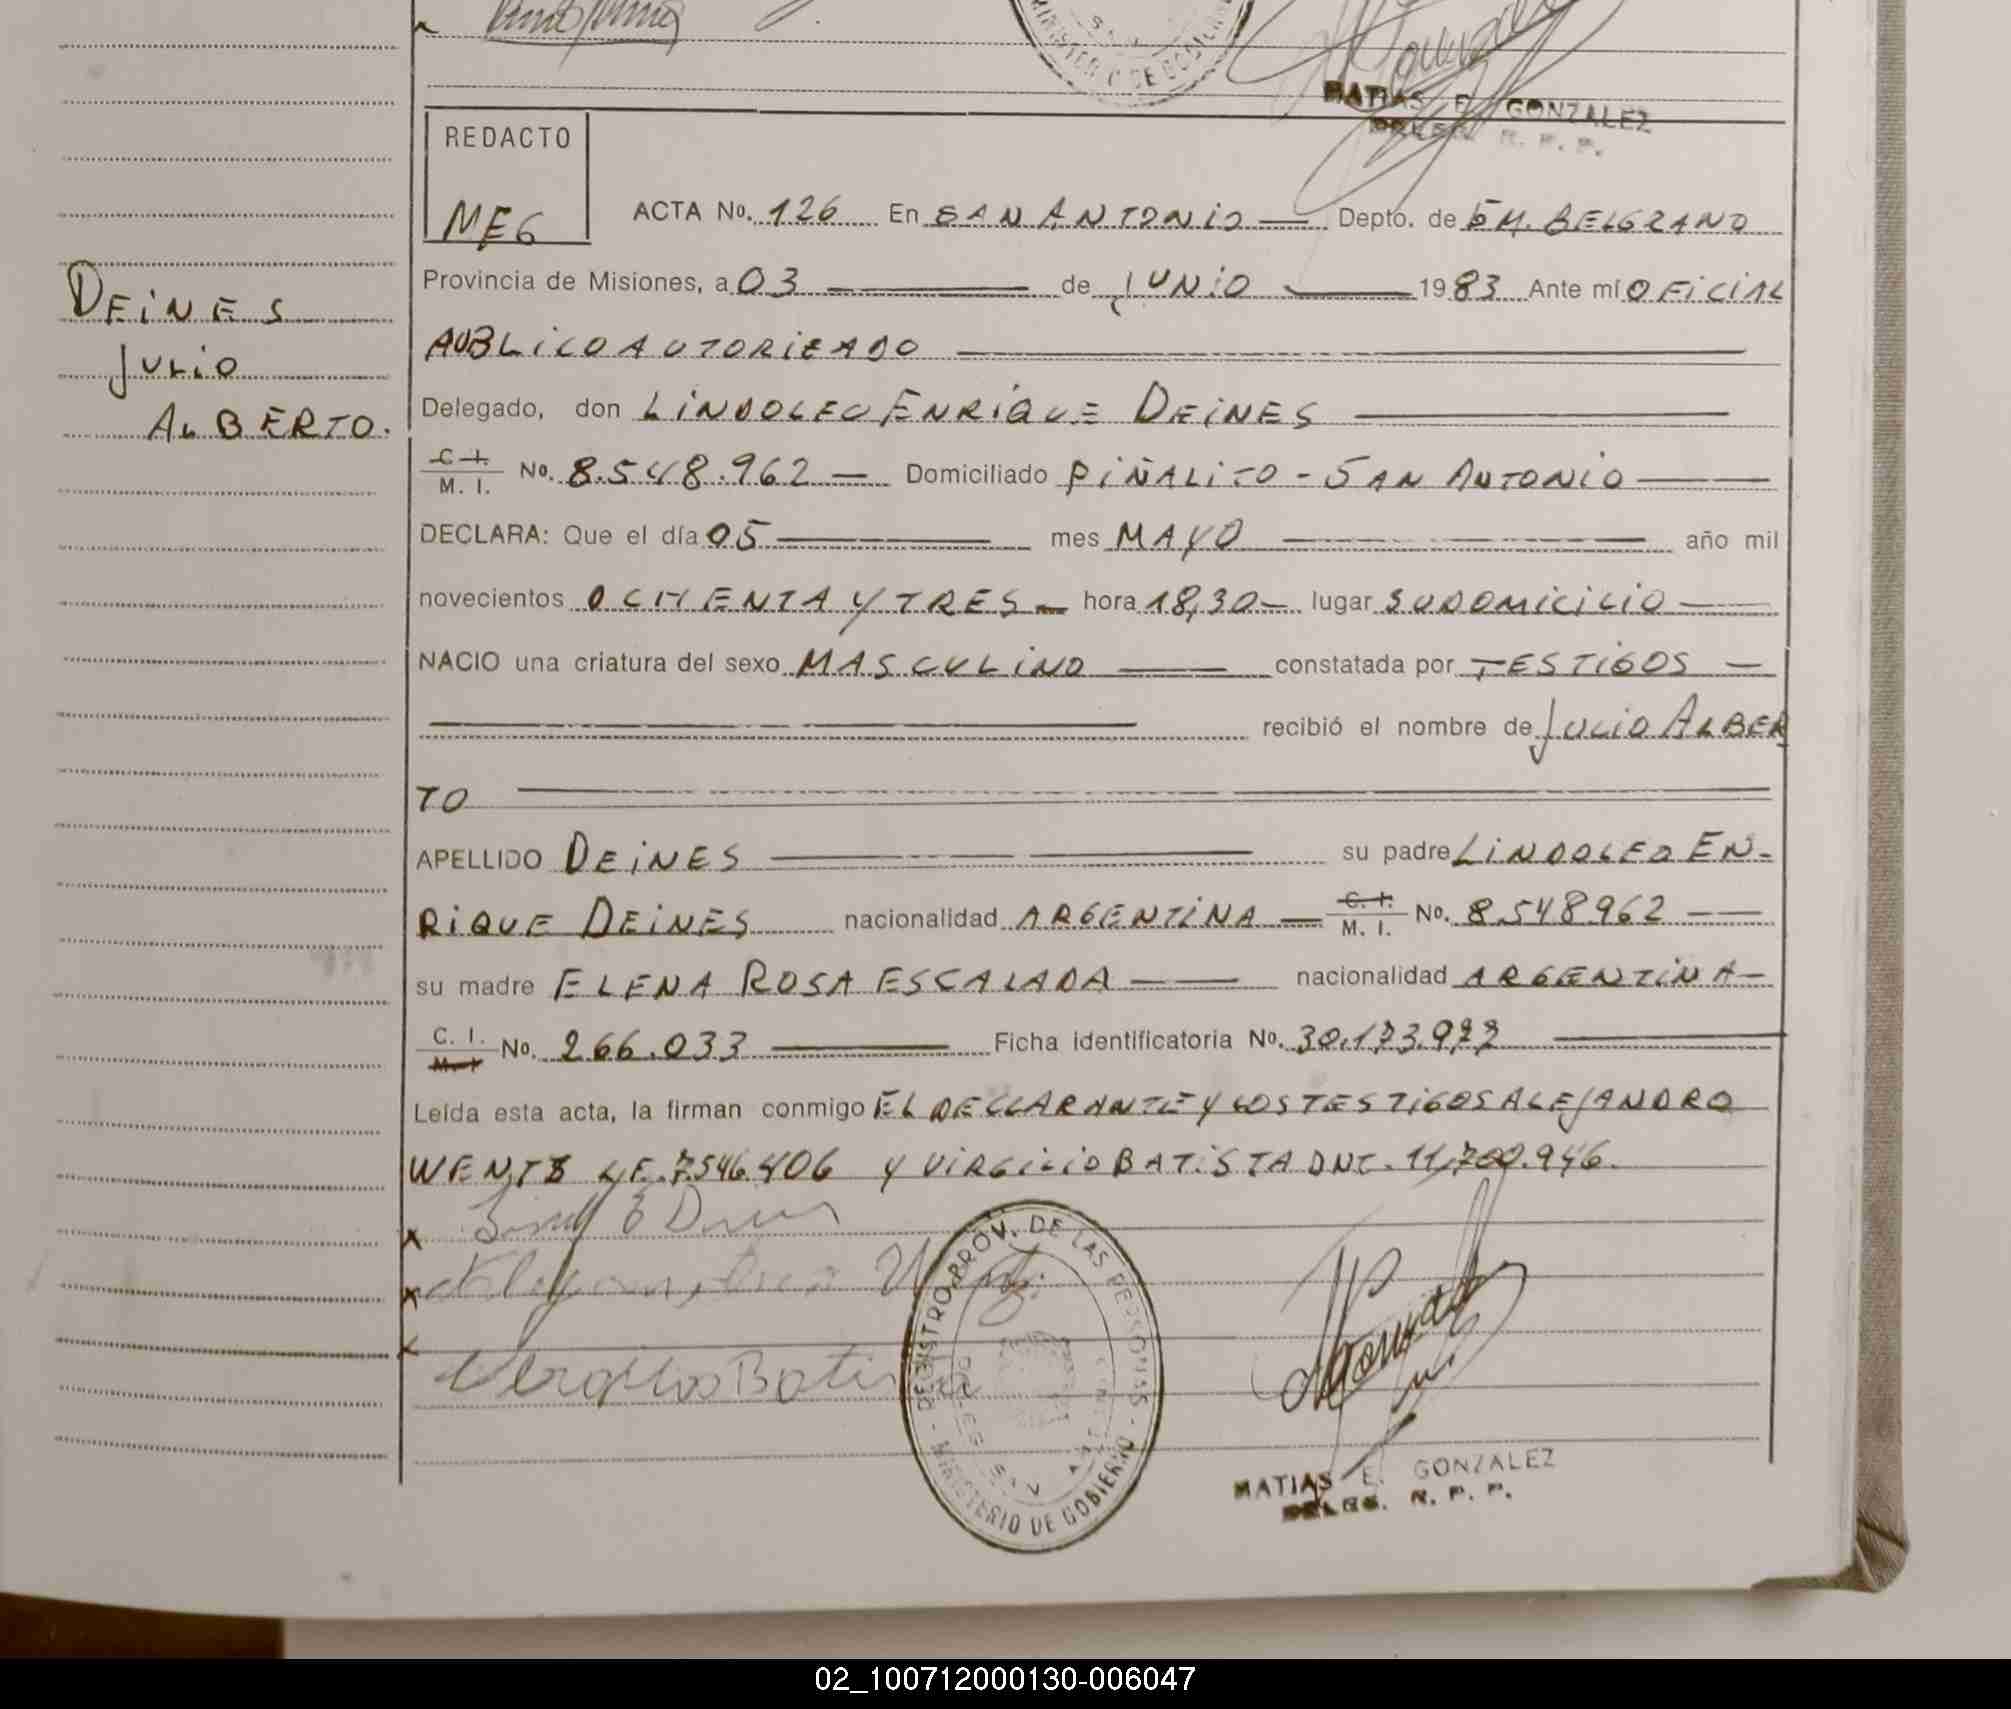 MINISTERIO DE GOBIERNO
MATIAS E. GONZALEZ
DELEG. R. P. P.
REDACTO
MEG
ACTA No. 126 En SAN ANTONIO Depto. de GM. BELGRANO
Provincia de Misiones, a 03 de JUNIO 1983 Ante mí OFICIAL
PUBLICO AUTORIZADO
Delegado, don LINDOLFO ENRIQUE DEINES
C. I. M. I. No. 8.548.962 Domiciliado PIÑALITO - SAN ANTONIO
DECLARA: Que el día 05 mes MAYO año mil
novecientos OCHENTA Y TRES hora 18,30 lugar SU DOMICILIO
NACIO una criatura del sexo MASCULINO constatada por TESTIGOS
recibió el nombre de JULIO ALBER
TO
APELLIDO DEINES su padre LINDOLFO EN-
RIQUE DEINES nacionalidad ARGENTINA C. I. M. I. No. 8.548962
su madre ELENA ROSA ESCALADA nacionalidad ARGENTINA
C. I. M. I. No. 266.033 Ficha identificatoria No. 30.173.977
Leída esta acta, la firman conmigo EL DECLARANTE Y LOS TESTIGOS ALEJANDRO
WENTZ LE. 7.546.406 Y VIRGILIO BATISTA DNI. 11,700.946.
DEINES
JULIO
ALBERTO.
REGISTRO PROV. DE LAS PERSONAS
MINISTERIO DE GOBIERNO
MATIAS E. GONZALEZ
DELEG. R. P. P.
02_100712000130-006047